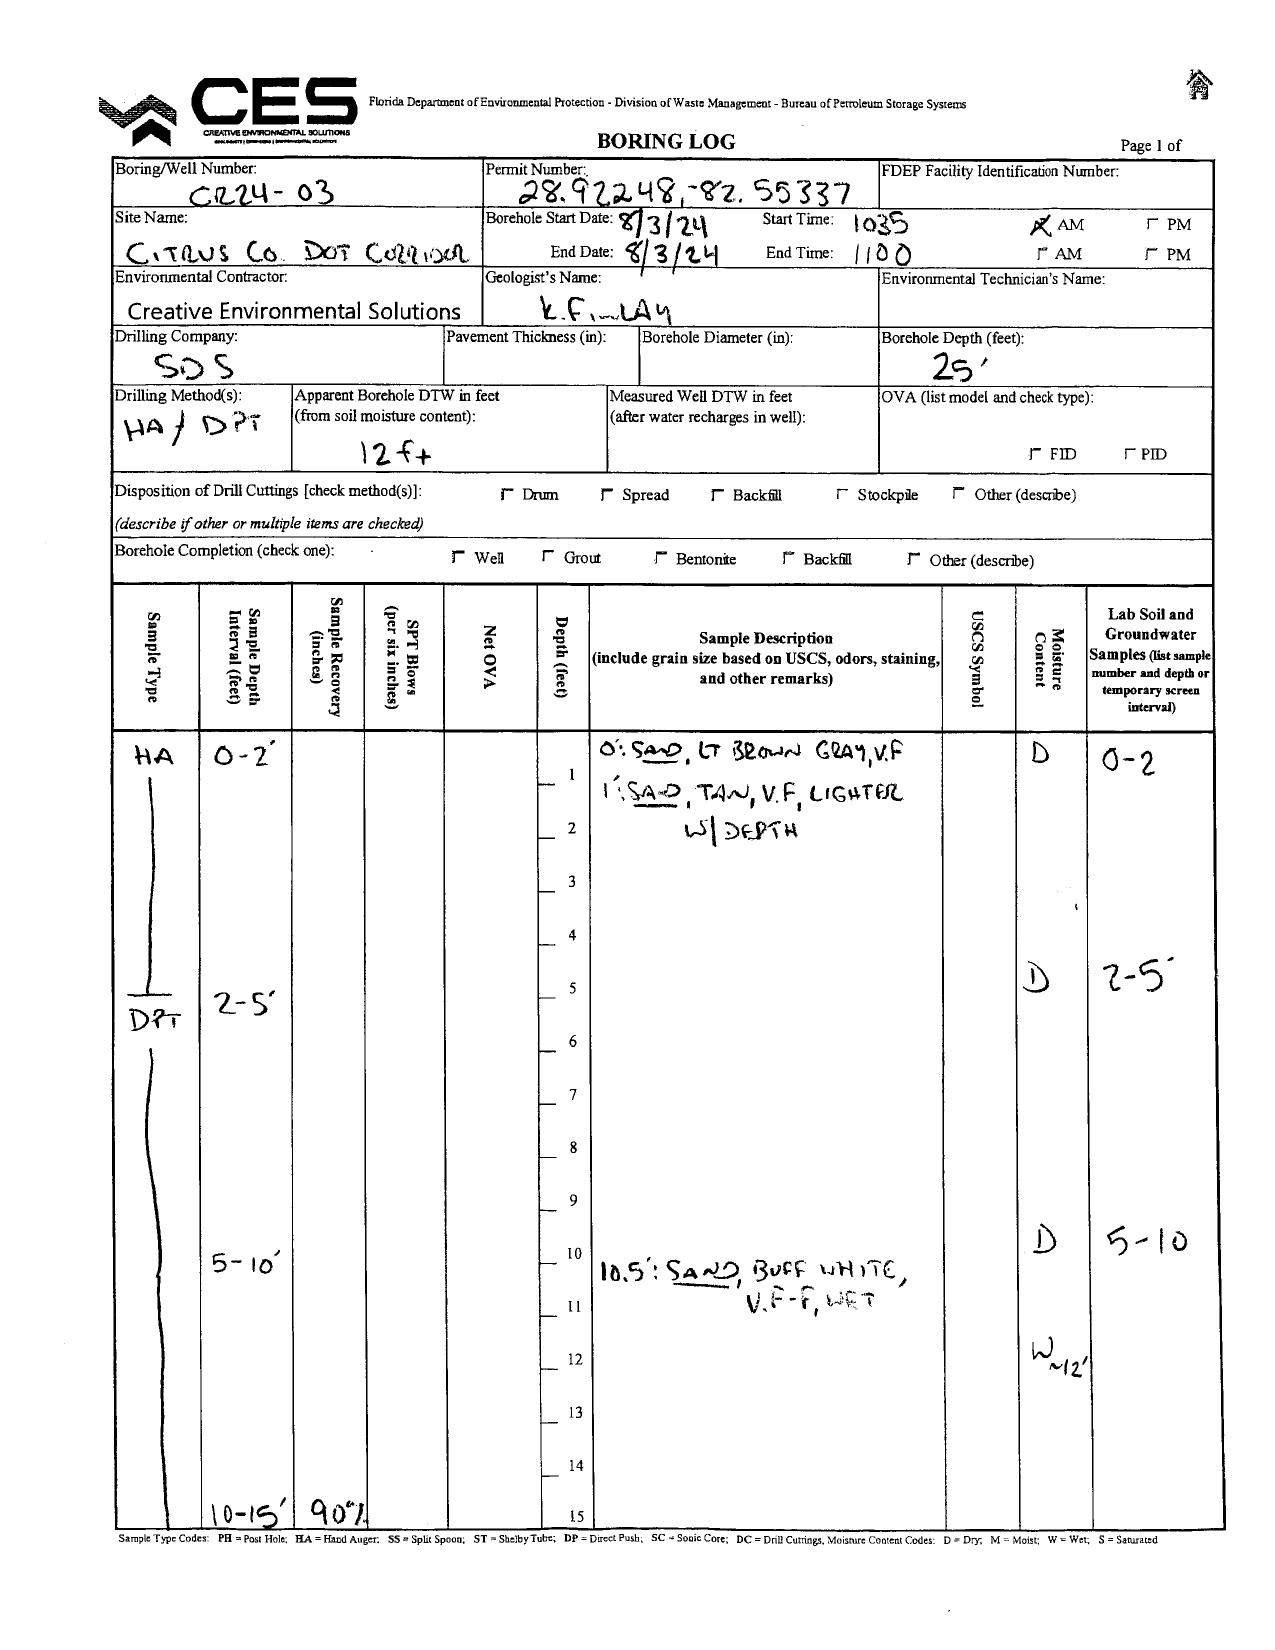 CES
CREATIVE ENVIRONMENTAL SOLUTIONS
Florida Department of Environmental Protection - Division of Waste Management - Bureau of Petroleum Storage Systems
BORING LOG
Page 1 of
Boring/Well Number:
CR24-03
Permit Number:
28.92248,-82.55337
FDEP Facility Identification Number:
Site Name:
CITRUS CO. DOT CORRIDOR
Borehole Start Date: 8/3/24
Start Time: 1035 AM PM
End Date: 8/3/24
End Time: 1100 AM PM
Environmental Contractor:
Creative Environmental Solutions
Geologist's Name:
K. FINLAY
Environmental Technician's Name:
Drilling Company:
SDS
Pavement Thickness (in):
Borehole Diameter (in):
Borehole Depth (feet):
25'
Drilling Method(s):
HA / DPT
Apparent Borehole DTW in feet
(from soil moisture content):
12 ft
Measured Well DTW in feet
(after water recharges in well):
OVA (list model and check type):
FID PID
Disposition of Drill Cuttings [check method(s)]: Drum Spread Backfill Stockpile Other (describe)
(describe if other or multiple items are checked)
Borehole Completion (check one): Well Grout Bentonite Backfill Other (describe)
Sample Type
Sample Depth
Interval (feet)
Sample Recovery
(inches)
SPT Blows
(per six inches)
Net OVA
Depth (feet)
Sample Description
(include grain size based on USCS, odors, staining,
and other remarks)
USCS Symbol
Moisture
Content
Lab Soil and
Groundwater
Samples (list sample
number and depth or
temporary screen
interval)
HA 0-2' 0': SAND, LT BROWN GRAY, V.F D 0-2
1
1': SAND, TAN, V.F, LIGHTER
2 W/ DEPTH
3
4
D 2-5'
5
2-5'
DPT
6
7
8
9
D 5-10
10
5-10' 10.5': SAND, BUFF WHITE,
11 V.F-F, WET
12 W ~12'
13
14
10-15' 90% 15
Sample Type Codes: PH = Post Hole; HA = Hand Auger; SS = Split Spoon; ST = Shelby Tube; DP = Direct Push; SC = Sonic Core; DC = Drill Cuttings, Moisture Content Codes: D = Dry; M = Moist; W = Wet; S = Saturated